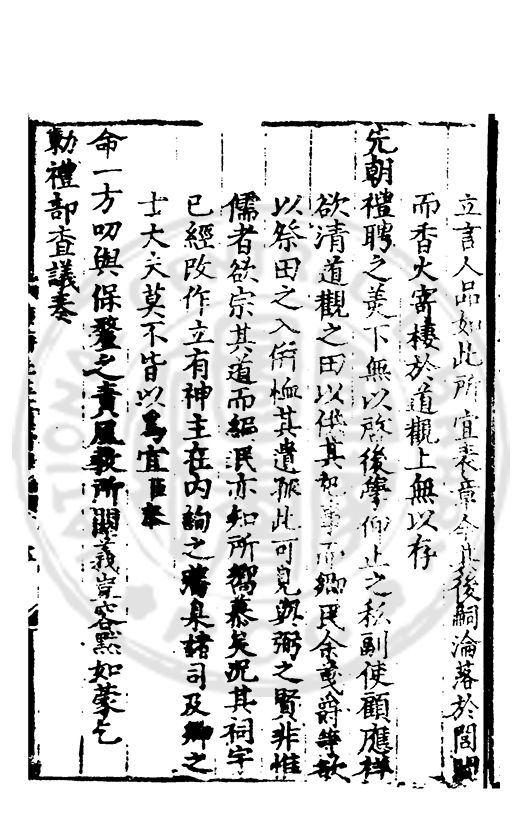 立言人品如此所宜表章今其後嗣淪落於閭閻
而香火寄棲於道觀上無以存
先朝禮聘之羙下無以啓後學仰止之私副使顧應祥
欲清道觀之田以供其祀事而鄉民余袞爵等欲
以祭田之入俻恤其遺孤此可見與弼之賢非惟
儒者欲宗其道而緼民亦知所嚮慕矣况其祠宇
已經改作立有神主在内詢之藩臬諸司及鄉之
士大夫莫不皆以爲宜臣奉
命一方叨與保釐之責風敎所關義豈容黙如蒙乞
勑禮部查議奏